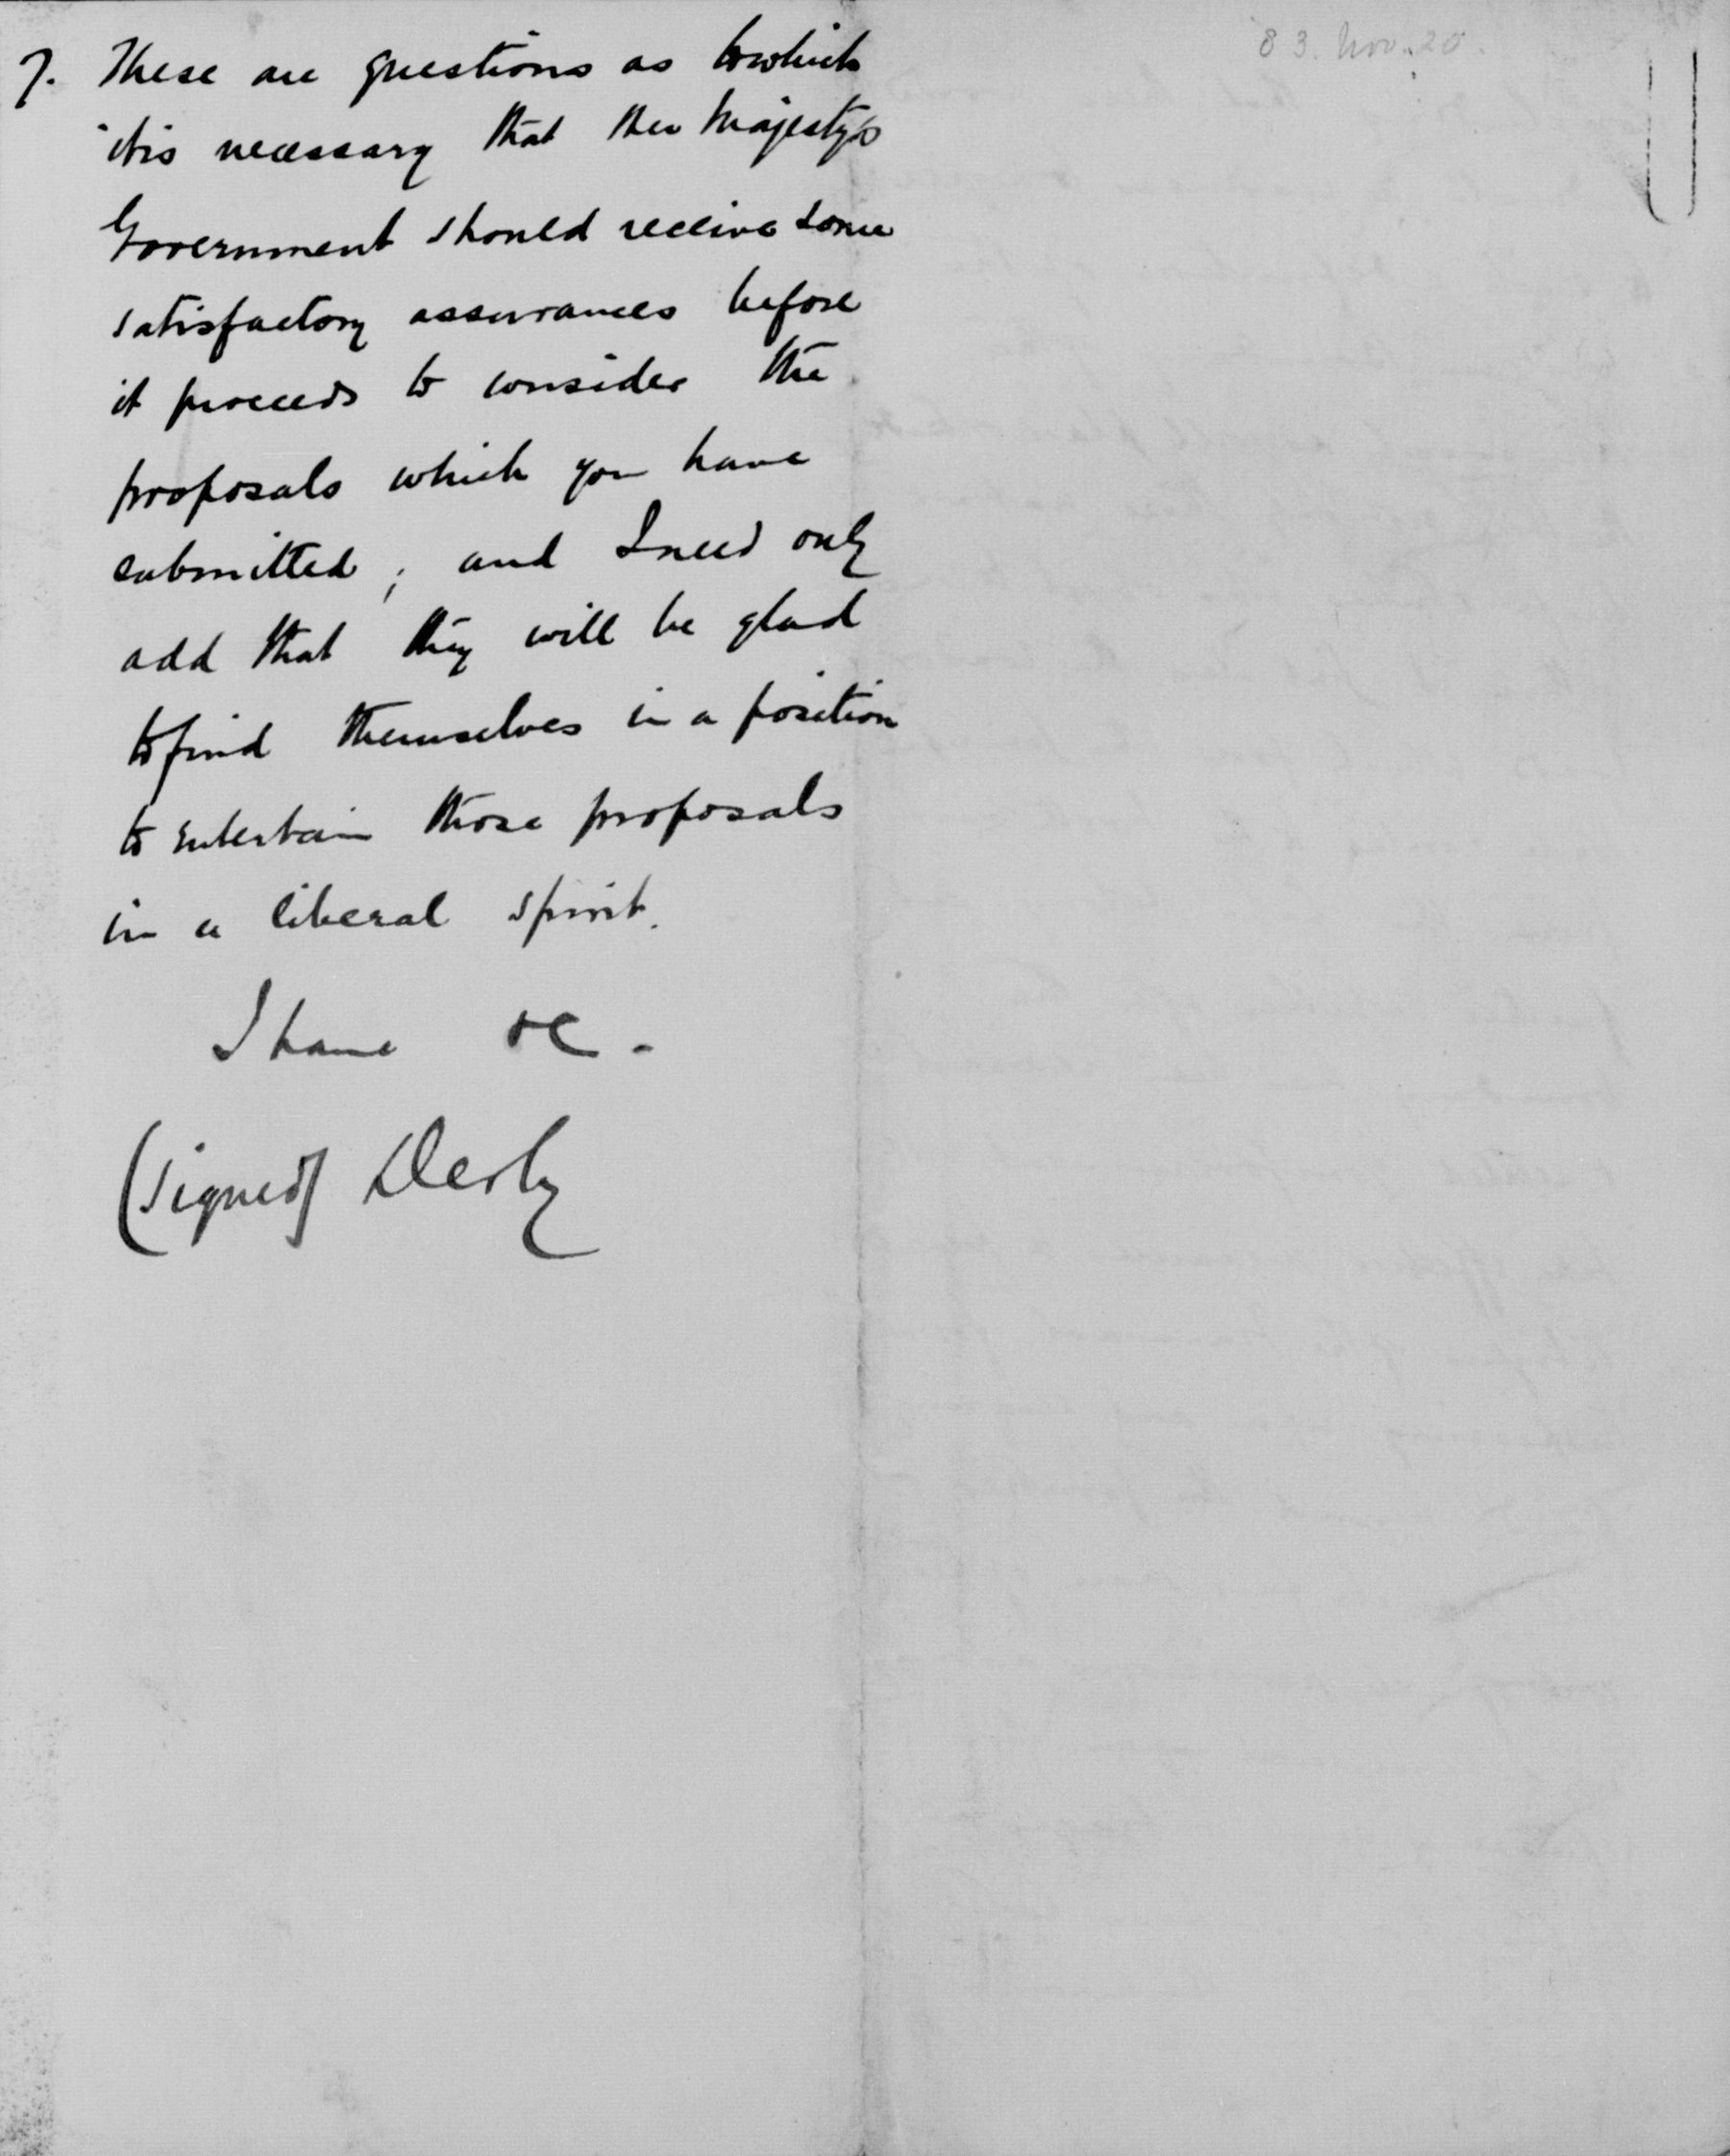 7. These are questions as to which
it is necessary that Her Majesty's
Government should receive some
satisfactory assurances before
it proceeds to consider the
proposals which you have
submitted; and I need only
add that they will be glad
to find themselves in a position
to entertain those proposals
in a liberal spirit.
I have &c.
(Signed) Derby
83. Nov. 20.